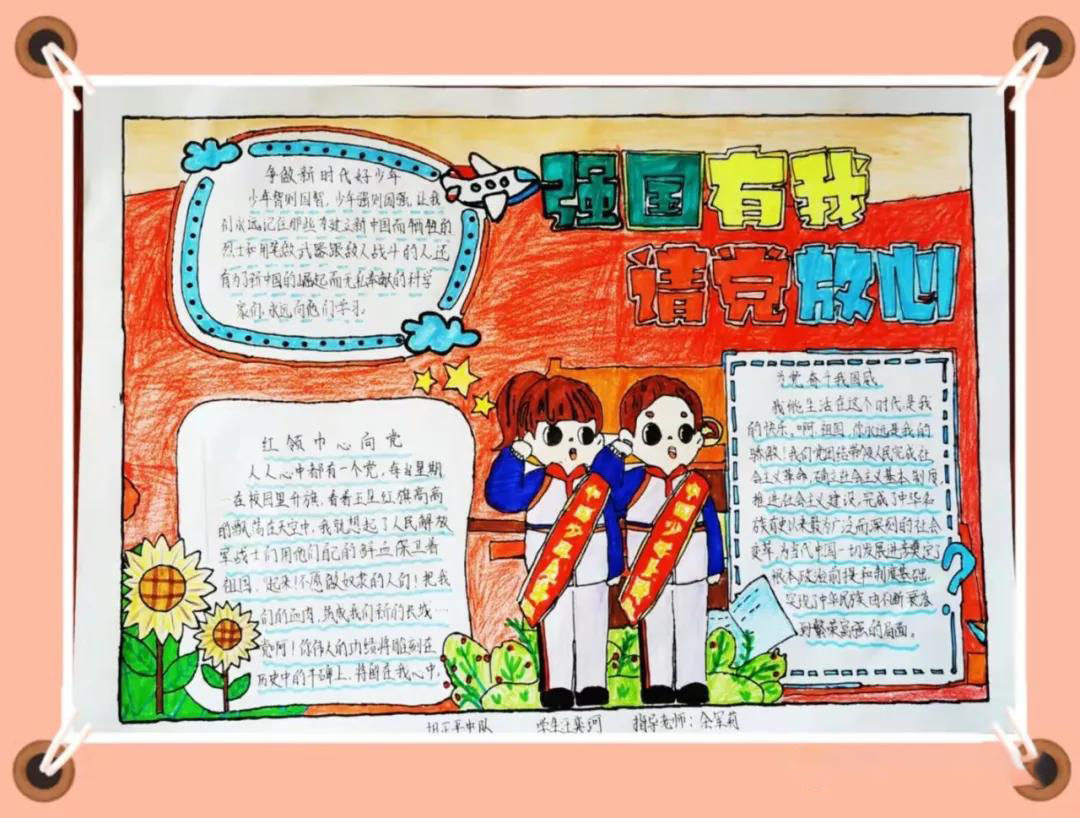 强国有我
请党放心
争做新时代好少年
少年智则国智,少年强则国强,让我
们永远记住那些为建立新中国而牺牲的
烈士和用笔做武器跟敌人战斗的人,还
有为了新中国的崛起而无私奉献的科学
家们,永远向他们学习。
红领巾心向党
人人心中都有一个党,每当星期
一在校园里升旗,看着五星红旗高高
的飘荡在天空中,我就想起了人民解放
军战士们用他们自己的鲜血保卫着
祖国,“起来!不愿做奴隶的人们!把我
们的血肉,筑成我们新的长城…
党啊!你伟人的功绩将雕刻在
历史中的丰碑上,将留在我心中。
为党奋斗我国威
我能生活在这个时代,是我
的快乐。啊,祖国,你永远是我的
骄傲!我们党团结带领人民完成社
会主义革命,确立社会主义基本制度,
推进社会主义建设,完成了中华民
族有史以来最为广泛而深刻的社会
变革,为当代中国一切发展进步奠定了
根本政治前提和制度基础,
实现了中华民族由不断衰落
到繁荣富强的局面。
中国少年先锋队
中国少年先锋队
中队
学生:王奕珂
指导老师:余军莉